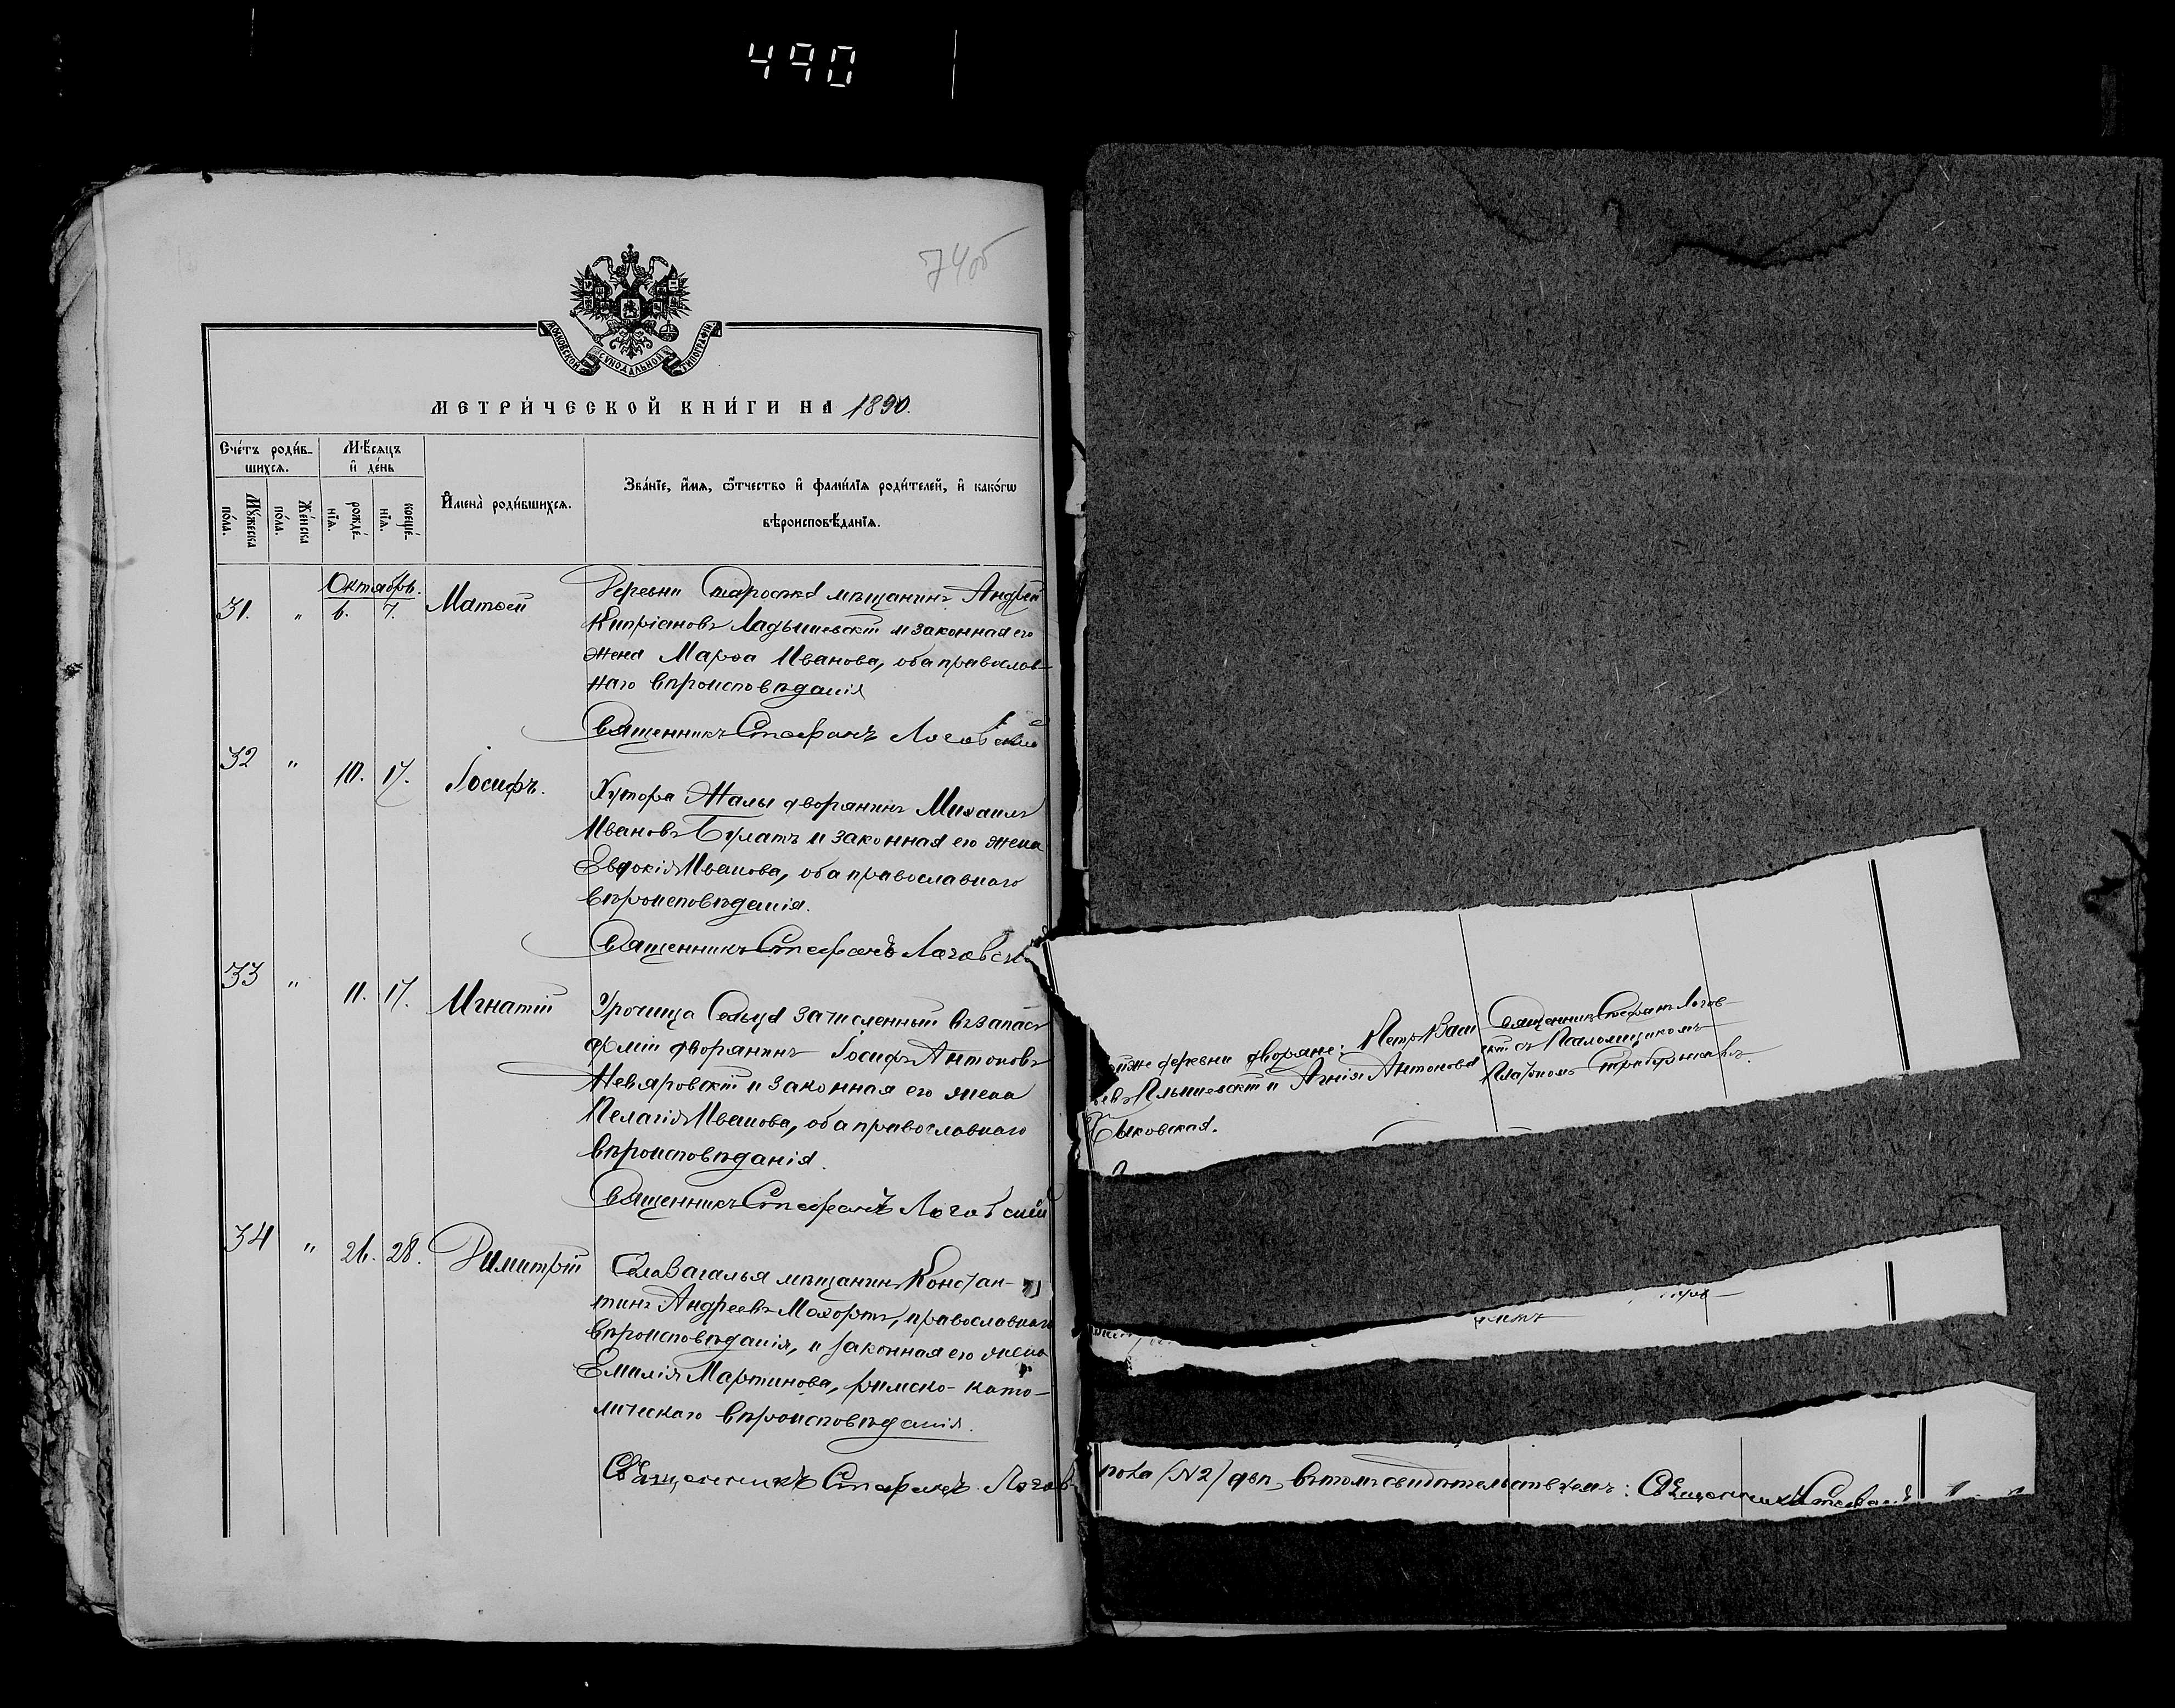 490
74об
МОСКОВСКОЙ СѴНОДАЛЬНОЙ ТИПОГРАФІИ
МЕТРИ́ЧЕСКОЙ КНИ́ГИ НА 1890.
Сче́тъ роди́в-
шихсѧ.
Мѣ́сѧцъ
и҆ де́нь
Мꙋ́жеска
по́ла.
Же́нска
по́ла.
рожде́-
нїѧ.
креще́-
нїѧ.
И҆мена̀ роди́вшихсѧ.
Зва́нїе, и҆́мѧ, ѻ҆́тчество и҆ фами́лїѧ роди́телей, и҆ како́гѡ
вѣроисповѣ́данїѧ.
Октябрь.
31. " 6. 7. Матѳей
Деревни Старосѣка мѣщанинъ Андрей
Кипріановъ Ладышевскій и законная его
жена Марѳа Иванова, оба православ-
наго вѣроисповѣданія
Священникъ Стефанъ Логовский
32 " 10. 17. Іосифъ.
Хутора Жалы дворянинъ Михаилъ
Ивановъ Булатъ и законная его жена
Евдокія Иванова, оба православнаго
вѣроисповѣданія.
Священникъ Стефанъ Логовск
33 " 11. 17. Игнатій
Урочища Сельца зачисленный въ запасъ
арміи дворянинъ Іосифъ Антоновъ
Невяровскій и законная его жена
Пелагія Иванова, оба православнаго
вѣроисповѣданія.
Священникъ Стефанъ Логовский
34 " 26. 28. Димитрій
Села Вагалья мѣщанинъ Констан-
тинъ Андреевъ Махортъ, православнаго
вѣроисповѣданія, и законная его жена
Емилія Мартинова, римско-като-
лическаго вѣроисповѣданія.
Священникъ Стефанъ Логов
деревни дворяне: Петръ Васи
Ильшевскій и Агнія Антонова
Быковская.
Священникъ Стефанъ Логов-
скій съ Псаломщикомъ
Платономъ
(№2) два, въ томъ свидѣтельствуемъ: Священникъ Стефанъ